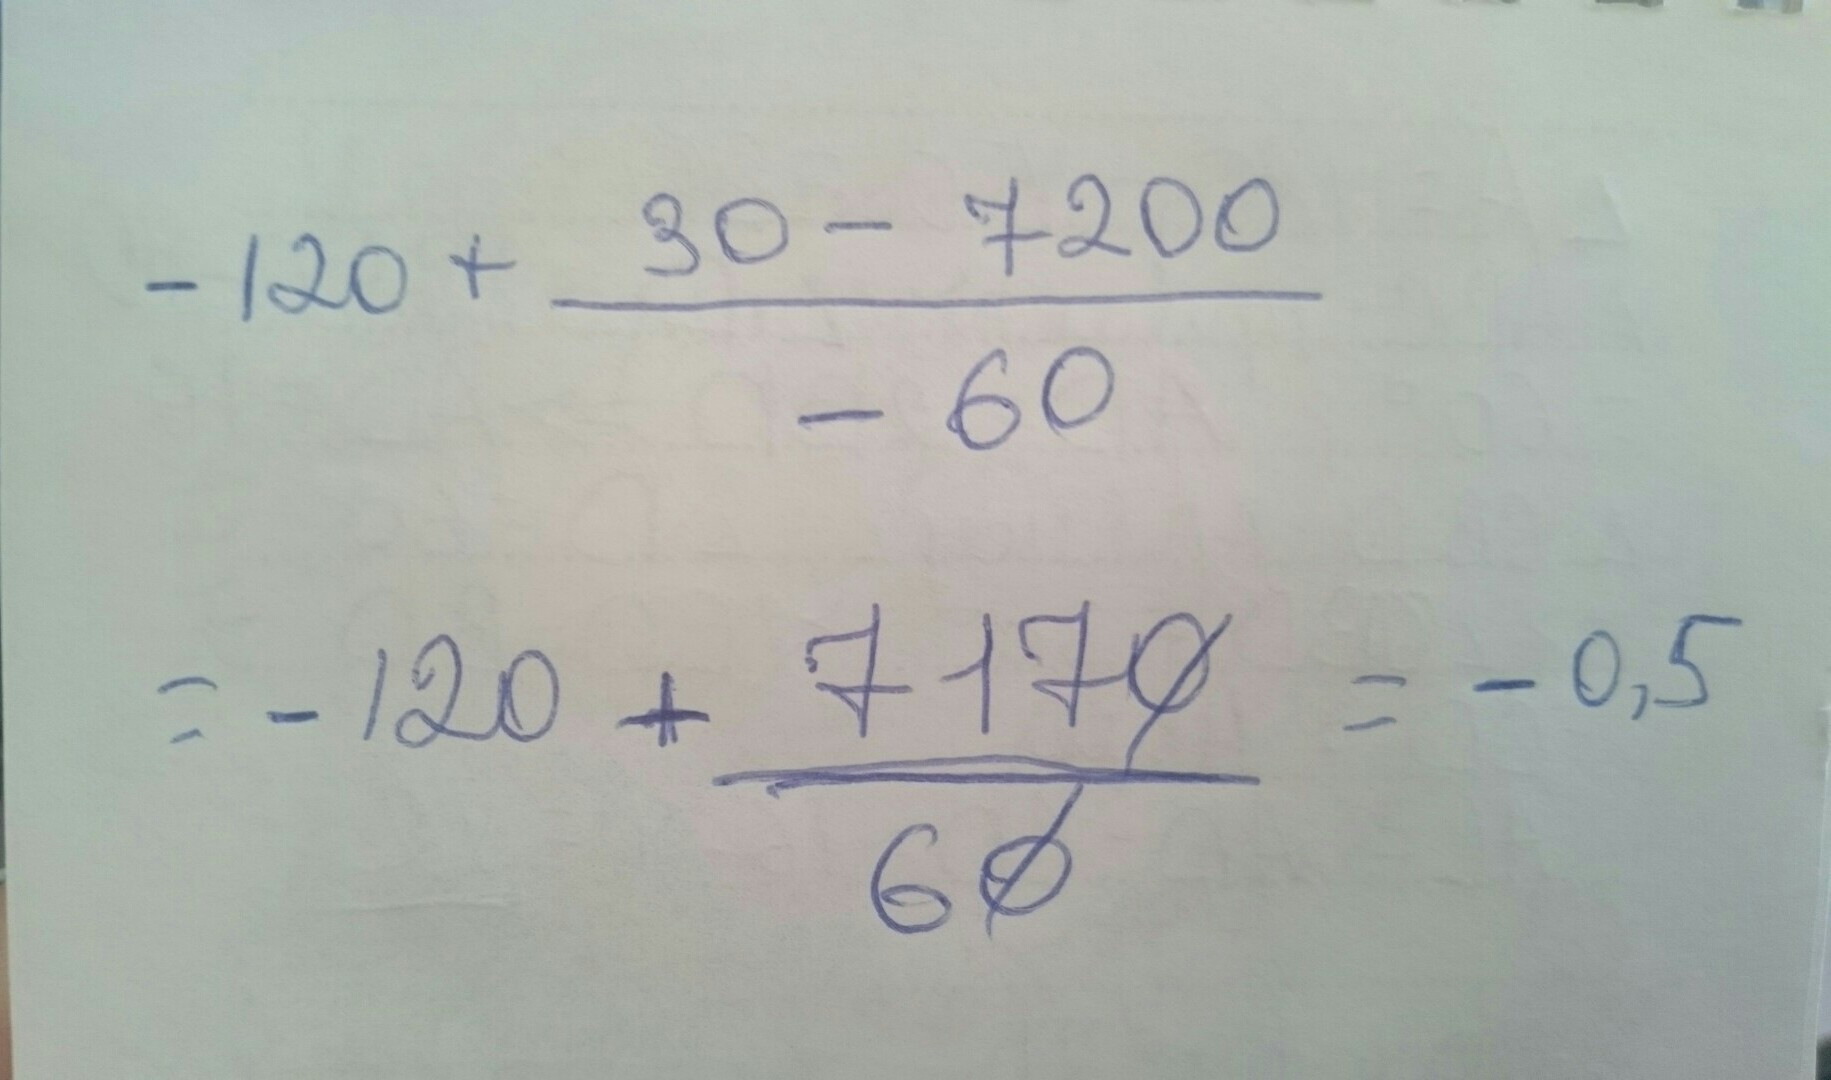 -120 + \frac{30 - 7200}{-60}
= -120 + \frac{7170}{60} = -0,5